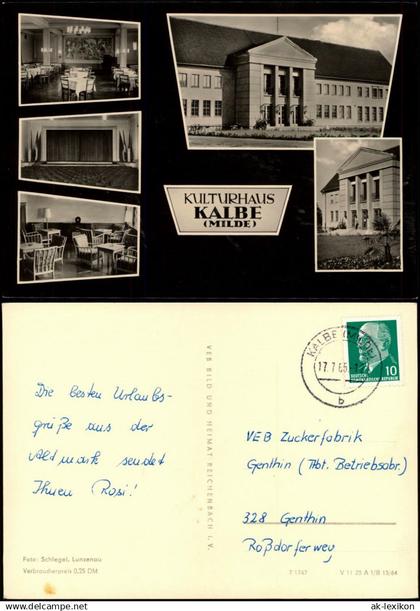 KULTURHAUS
KALBE
(MILDE)
Die besten Urlaubs-
grüße aus der
Altmark sendet
Ihnen Rosi!
Foto: Schlegel, Lunzenau
Verbraucherpreis 0,25 DM
VEB BILD UND HEIMAT REICHENBACH I. V.
KALBE (MILDE)
17.7.65
b
10
DEUTSCHE
DEMOKRATISCHE REPUBLIK
VEB Zuckerfabrik
Genthin (Abt. Betriebsabr.)
328 Genthin
Roßdorferweg
V 11 28 A 1/B 13/64
www.ansichtskarten-lexikon.de
ak-lexikon.com